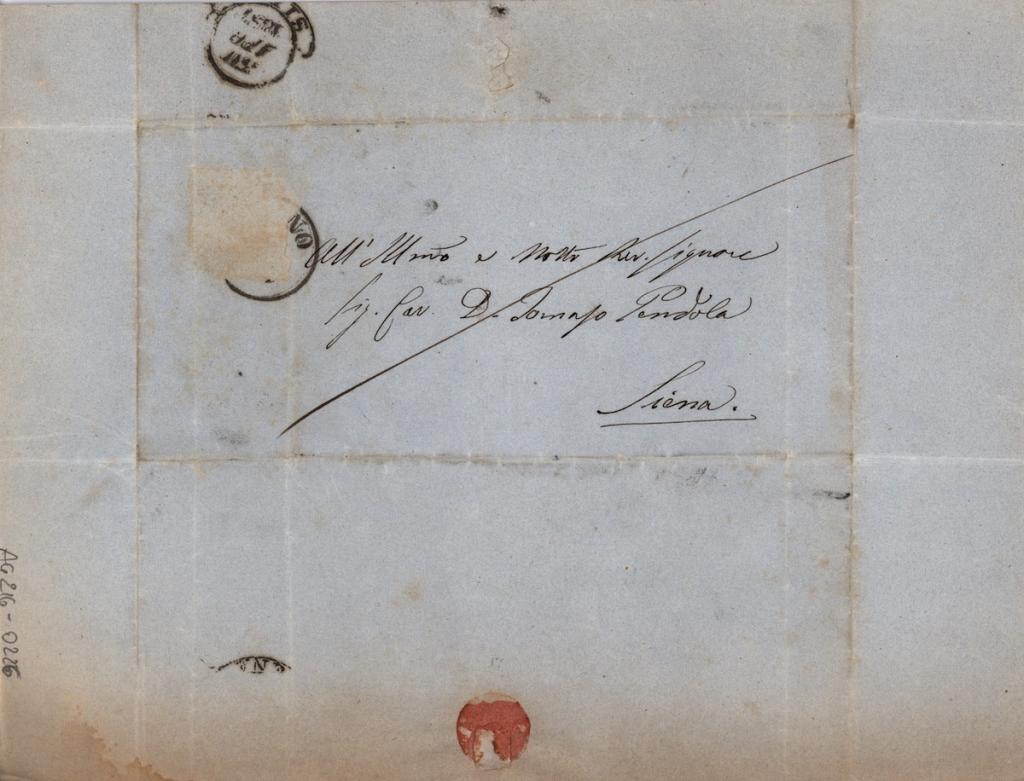 NO
All' Illmo e Molto Rev. Signore
Sig. Cav. D. Tomaso Pendola
Siena.
AG 216 - 0226